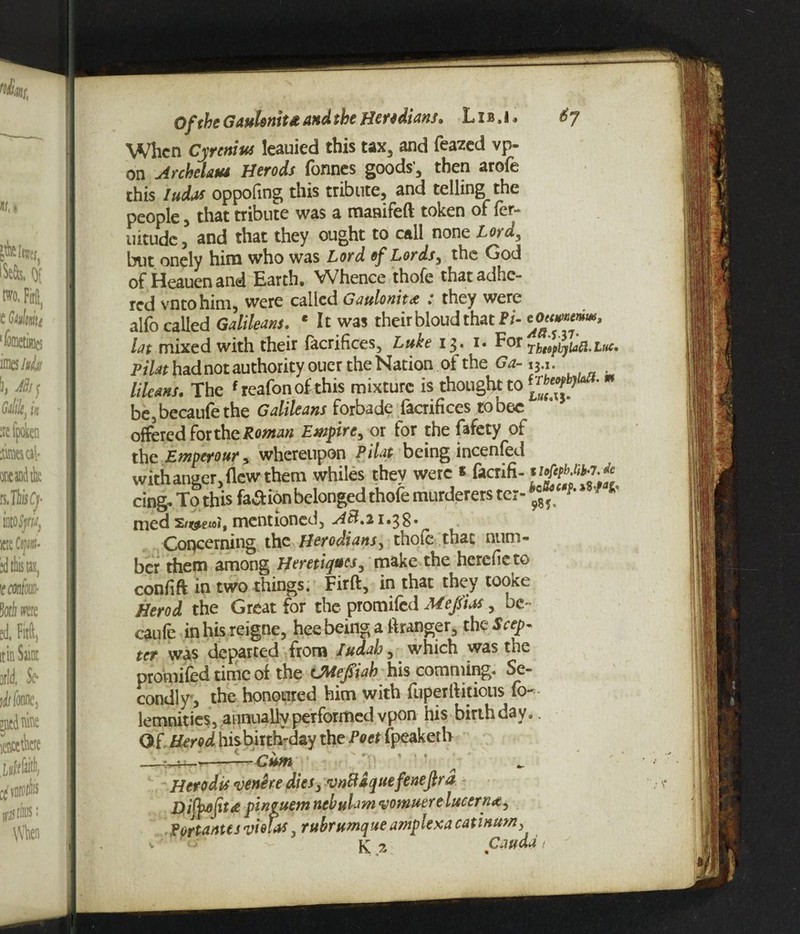 Of the Gaulonitæ and the Herodians. LIB.1. 67
When Cyrenius leauied this tax, and ſeazed vp-
on Archelaus Herods ſonnes goods, then aroſe
this Iudas oppoſing this tribute, and telling the
people, that tribute was a manifeſt token of ſer-
uitude, and that they ought to call none Lord,
but onely him who was Lord of Lords, the God
of Heauen and Earth. Whence thoſe that adhe-
red vnto him, were called Gaulonitæ : they were
alſo called Galileans. e It was their bloud that Pi-
lat mixed with their ſacrifices, Luke 13. 1. For
Pilat had not authority ouer the Nation of the Ga-
lileans. The f reaſon of this mixture is thought to
be, becauſe the Galileans forbade ſacrifices to bee
offered for the Roman Empire, or for the ſafety of
the Emperour, whereupon Pilat being incenſed
with anger, ſlew them whiles they were g ſacrifi-
cing. To this faction belonged thoſe murderers ter-
med Σικάριοι, mentioned, Act.21.38.
Concerning the Herodians, thoſe that num-
ber them among Heretiques, make the hereſie to
conſiſt in two things. Firſt, in that they tooke
Herod the Great for the promiſed Meſsias, be-
cauſe in his reigne, hee being a ſtranger, the Scep-
ter was departed from Iudah, which was the
promiſed time of the Meſsiah his comming. Se-
condly, the honoured him with ſuperſtitious ſo-
lemnities, annually performed vpon his birth day.
Of Herod his birth-day the Poet ſpeaketh
Cùm
Herodis venêre dies, vnctáque feneſtrâ
Diſpoſitæ pinguem nebulam vomuere lucernæ,
Portantes violas, rubrumque amplexa catinum,
K 2 Cauda
e Oecumenius,
Act.5.37.
Theophylact. Luc.
13.1.
f Theophylact. in
Luc.13.
g Ioſeph.lib.7. de
bello cap. 28.pag.
985.
the Iewes,
Sects. Of
two. Firſt,
ſometimes
ſpoken
one and the
into Syria,
this tax,
Both were
Firſt,
it in Saint
ſonne,
When